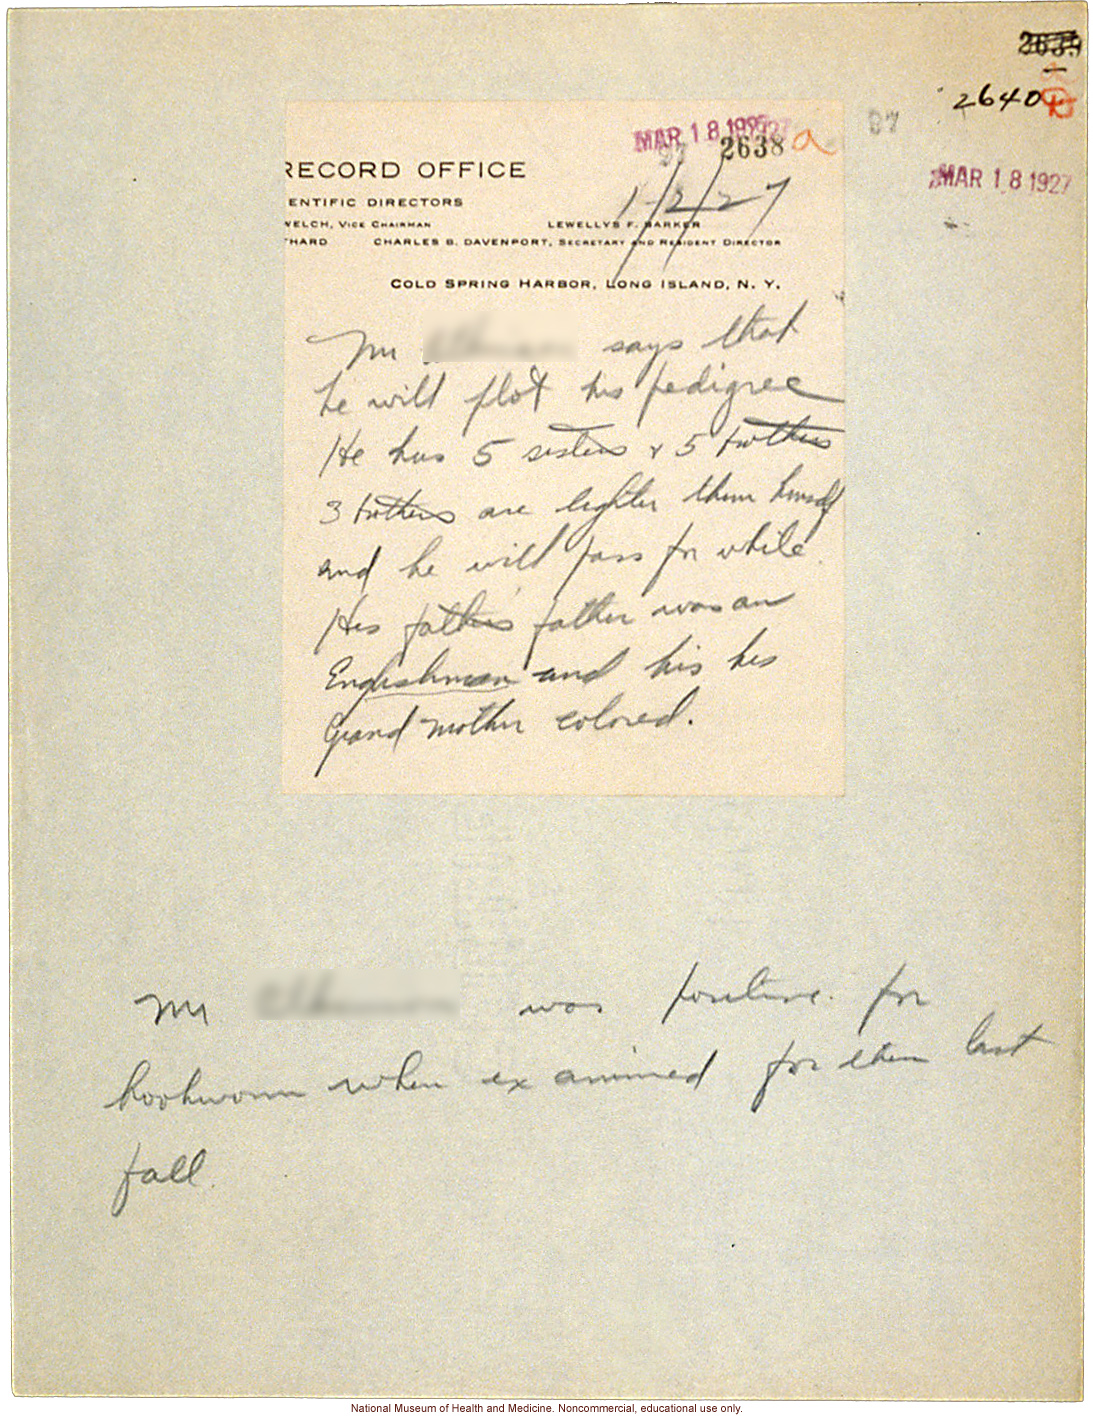 2639
2640
MAR 18 1927
2638 a
97
MAR 18 1927
RECORD OFFICE
1/3/27
ENTIFIC DIRECTORS
WELCH, VICE CHAIRMAN LEWELLYS F. BARKER
THARD CHARLES B. DAVENPORT, SECRETARY AND RESIDENT DIRECTOR
COLD SPRING HARBOR, LONG ISLAND, N. Y.
Mr says that
he will plot his pedigree
He has 5 sisters & 5 brothers
3 brothers are lighter them himself
and he will pass for while
His father's father was an
Englishman and his his
Grand mother colored.
Mr was positive for
hookworm when examined for them last
fall.
National Museum of Health and Medicine. Noncommercial, educational use only.